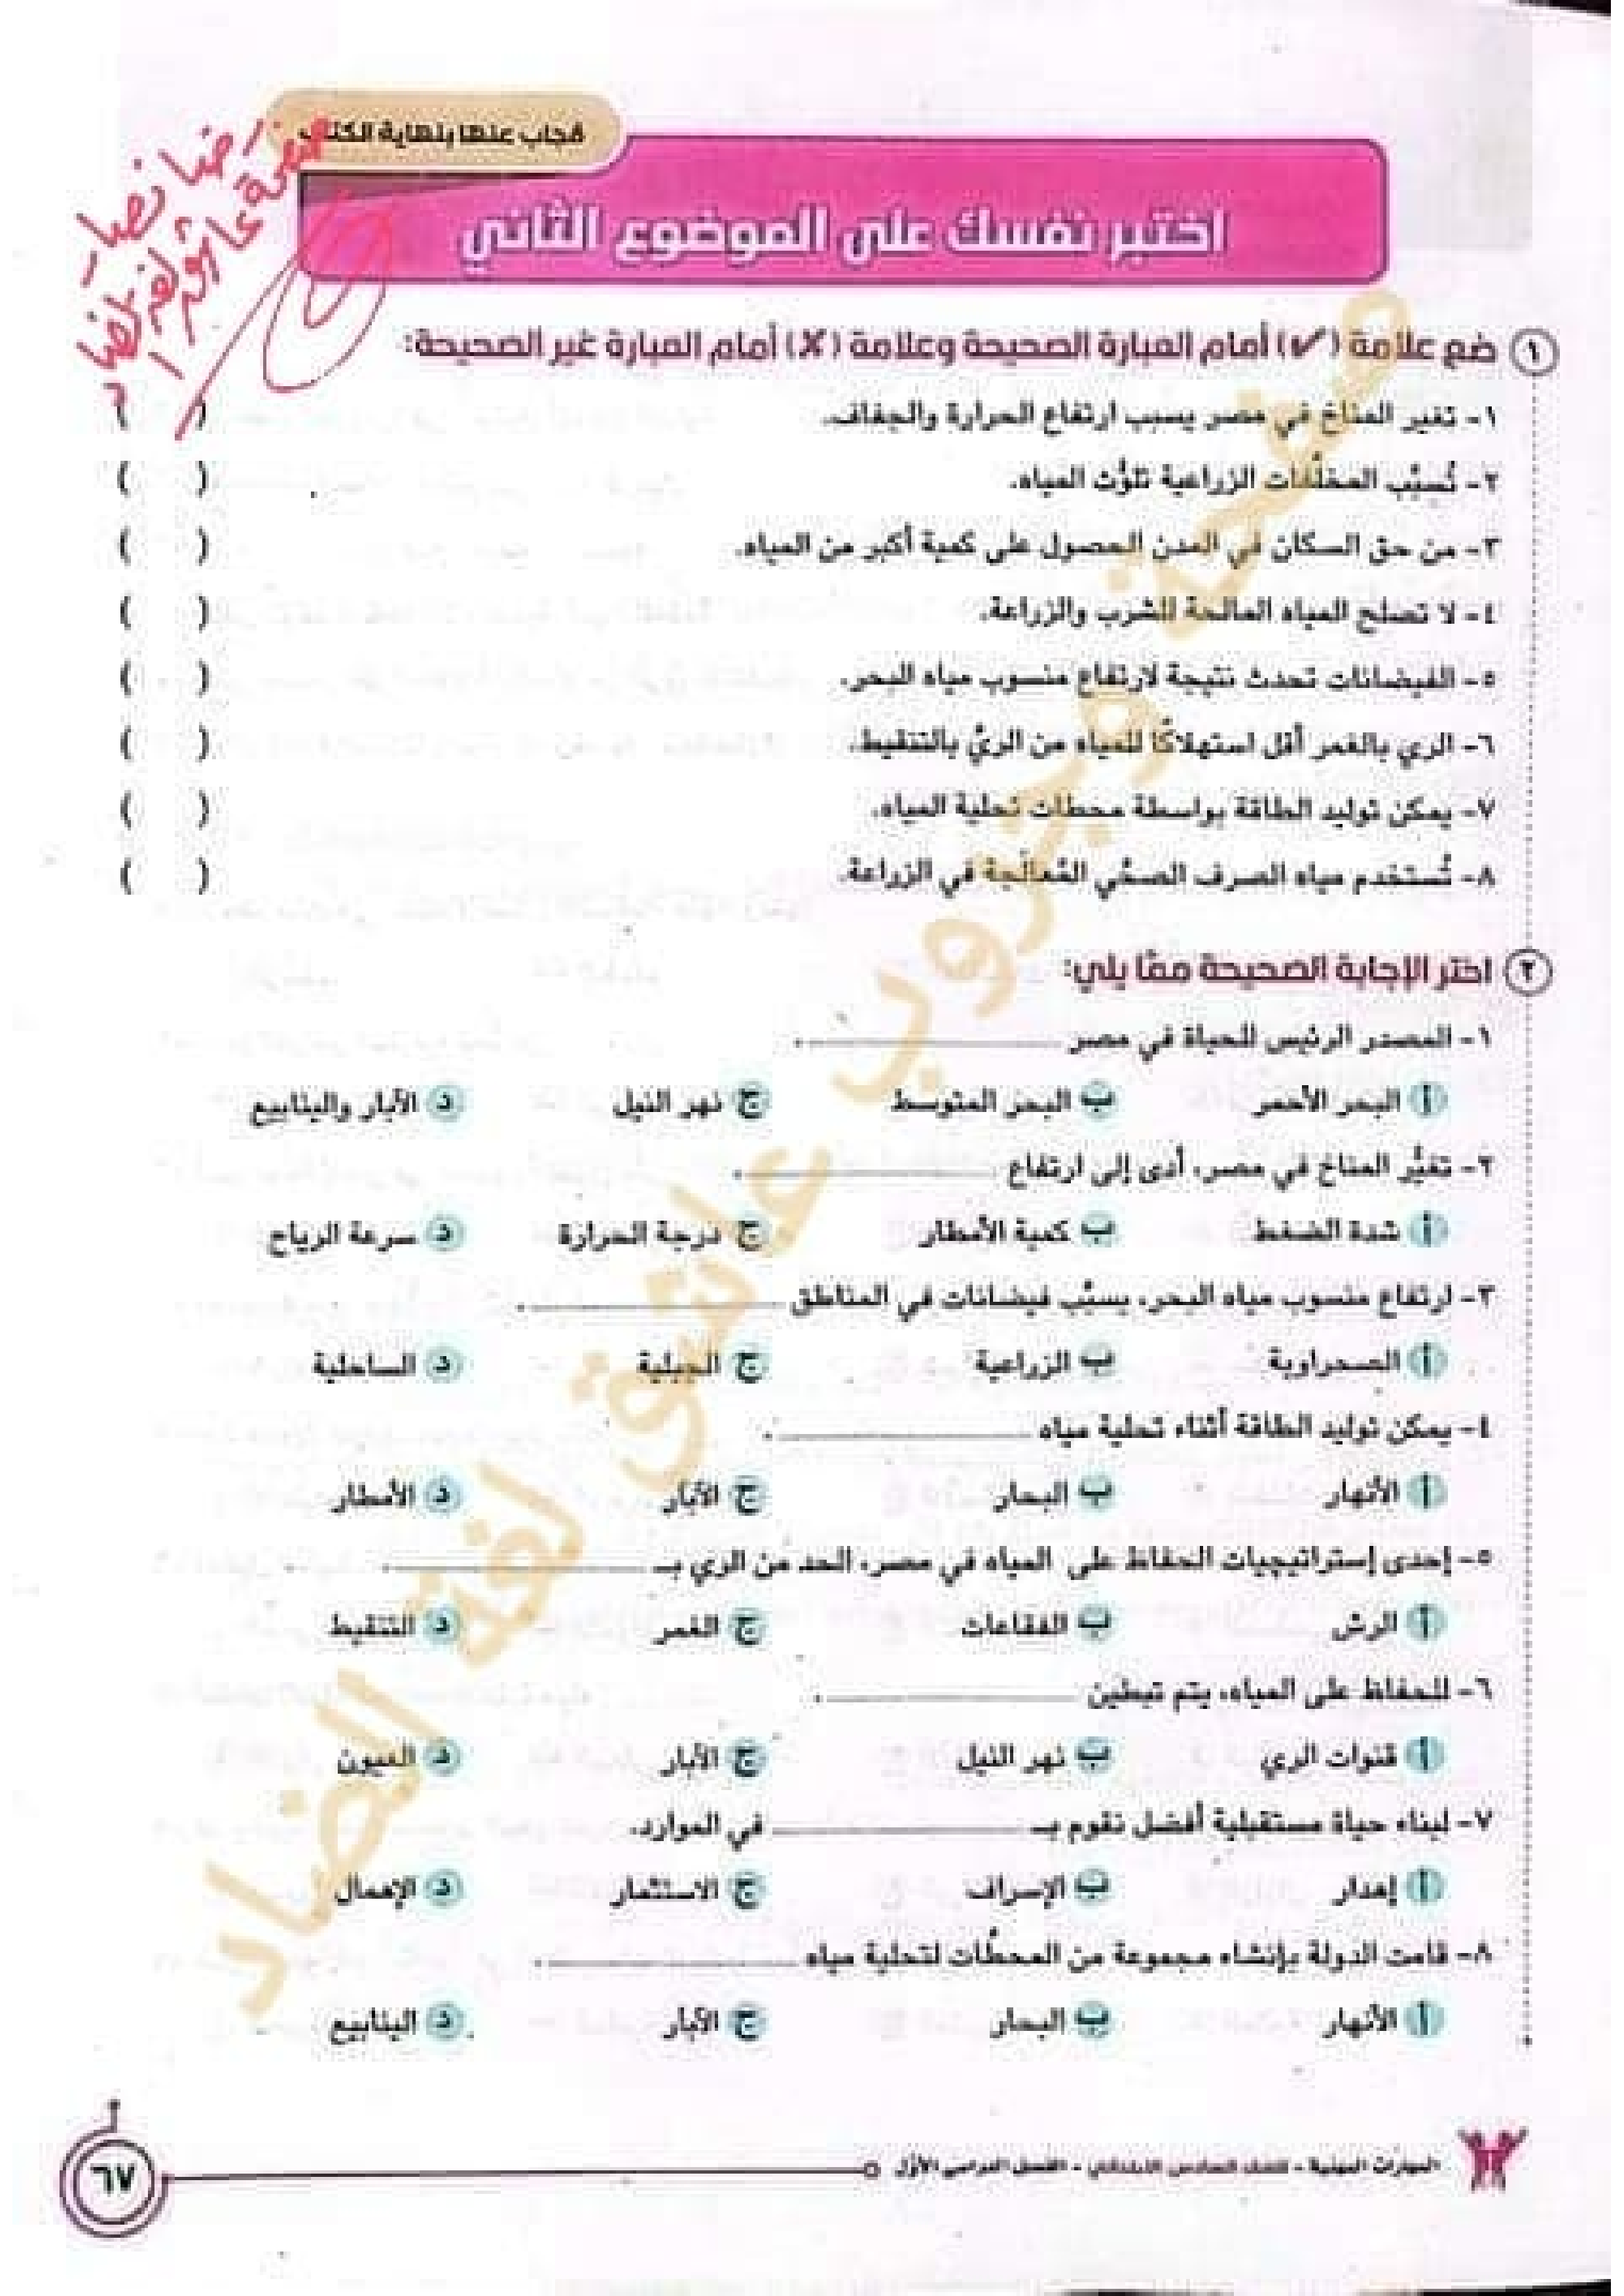 مجاب عنها بنهاية الكتاب
اختبر نفسك على الموضوع الثاني
١ ضع علامة (✓) أمام العبارة الصحيحة وعلامة (X) أمام العبارة غير الصحيحة:
١- تغير المناخ في مصر يسبب ارتفاع الحرارة والجفاف. ( )
٢- تُسبِّب المخلَّفات الزراعية تلوُّث المياه. ( )
٣- من حق السكان في المدن الحصول على كمية أكبر من المياه. ( )
٤- لا تصلح المياه المالحة للشرب والزراعة. ( )
٥- الفيضانات تحدث نتيجة لارتفاع منسوب مياه البحر. ( )
٦- الري بالغمر أقل استهلاكًا للمياه من الريِّ بالتنقيط. ( )
٧- يمكن توليد الطاقة بواسطة محطات تحلية المياه. ( )
٨- تُستخدم مياه الصرف الصحِّي المُعالَجة في الزراعة. ( )
٢ اختر الإجابة الصحيحة ممَّا يلي:
١- المصدر الرئيس للحياة في مصر .............................
أ البحر الأحمر ب البحر المتوسط ج نهر النيل د الآبار والينابيع
٢- تغيُّر المناخ في مصر، أدى إلى ارتفاع .............................
أ شدة الضغط ب كمية الأمطار ج درجة الحرارة د سرعة الرياح
٣- ارتفاع منسوب مياه البحر، يسبِّب فيضانات في المناطق .............................
أ الصحراوية ب الزراعية ج الجبلية د الساحلية
٤- يمكن توليد الطاقة أثناء تحلية مياه .............................
أ الأنهار ب البحار ج الآبار د الأمطار
٥- إحدى إستراتيجيات الحفاظ على المياه في مصر، الحد من الري بـ .............................
أ الرش ب الفقاعات ج الغمر د التنقيط
٦- للحفاظ على المياه، يتم تبطين .............................
أ قنوات الري ب نهر النيل ج الآبار د العيون
٧- لبناء حياة مستقبلية أفضل نقوم بـ ............................. في الموارد.
أ إهدار ب الإسراف ج الاستثمار د الإهمال
٨- قامت الدولة بإنشاء مجموعة من المحطَّات لتحلية مياه .............................
أ الأنهار ب البحار ج الآبار د الينابيع
المهارات المهنية - للصف السادس الابتدائي - الفصل الدراسي الأوَّل
٦٧
صفحة وجروب عاشق لغة الضاد